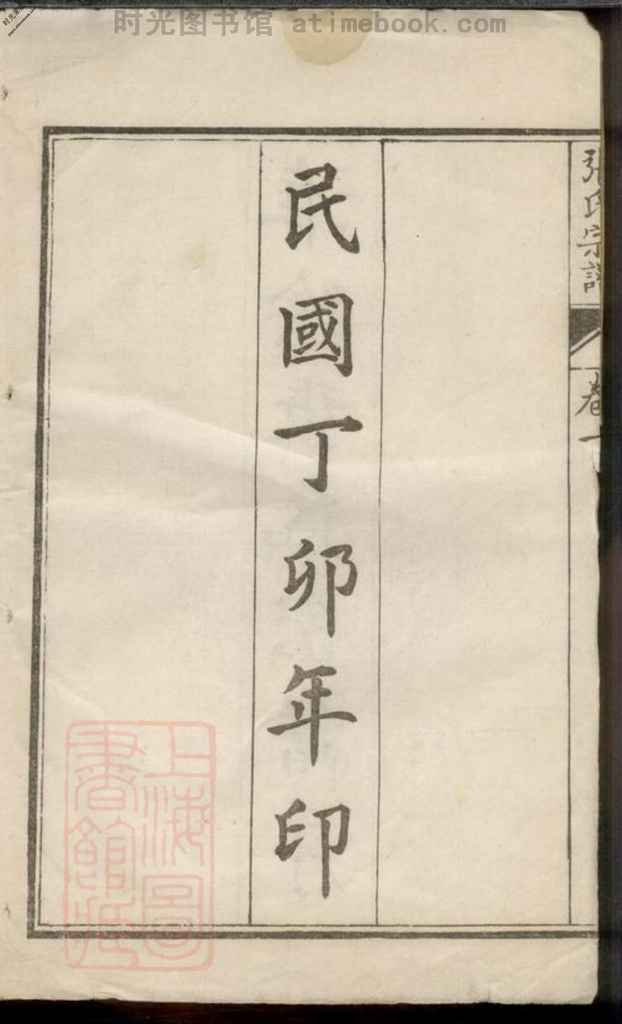 时光图书馆 atimebook.com
張氏宗譜
卷一
民國丁卯年印
上海圖
書館藏